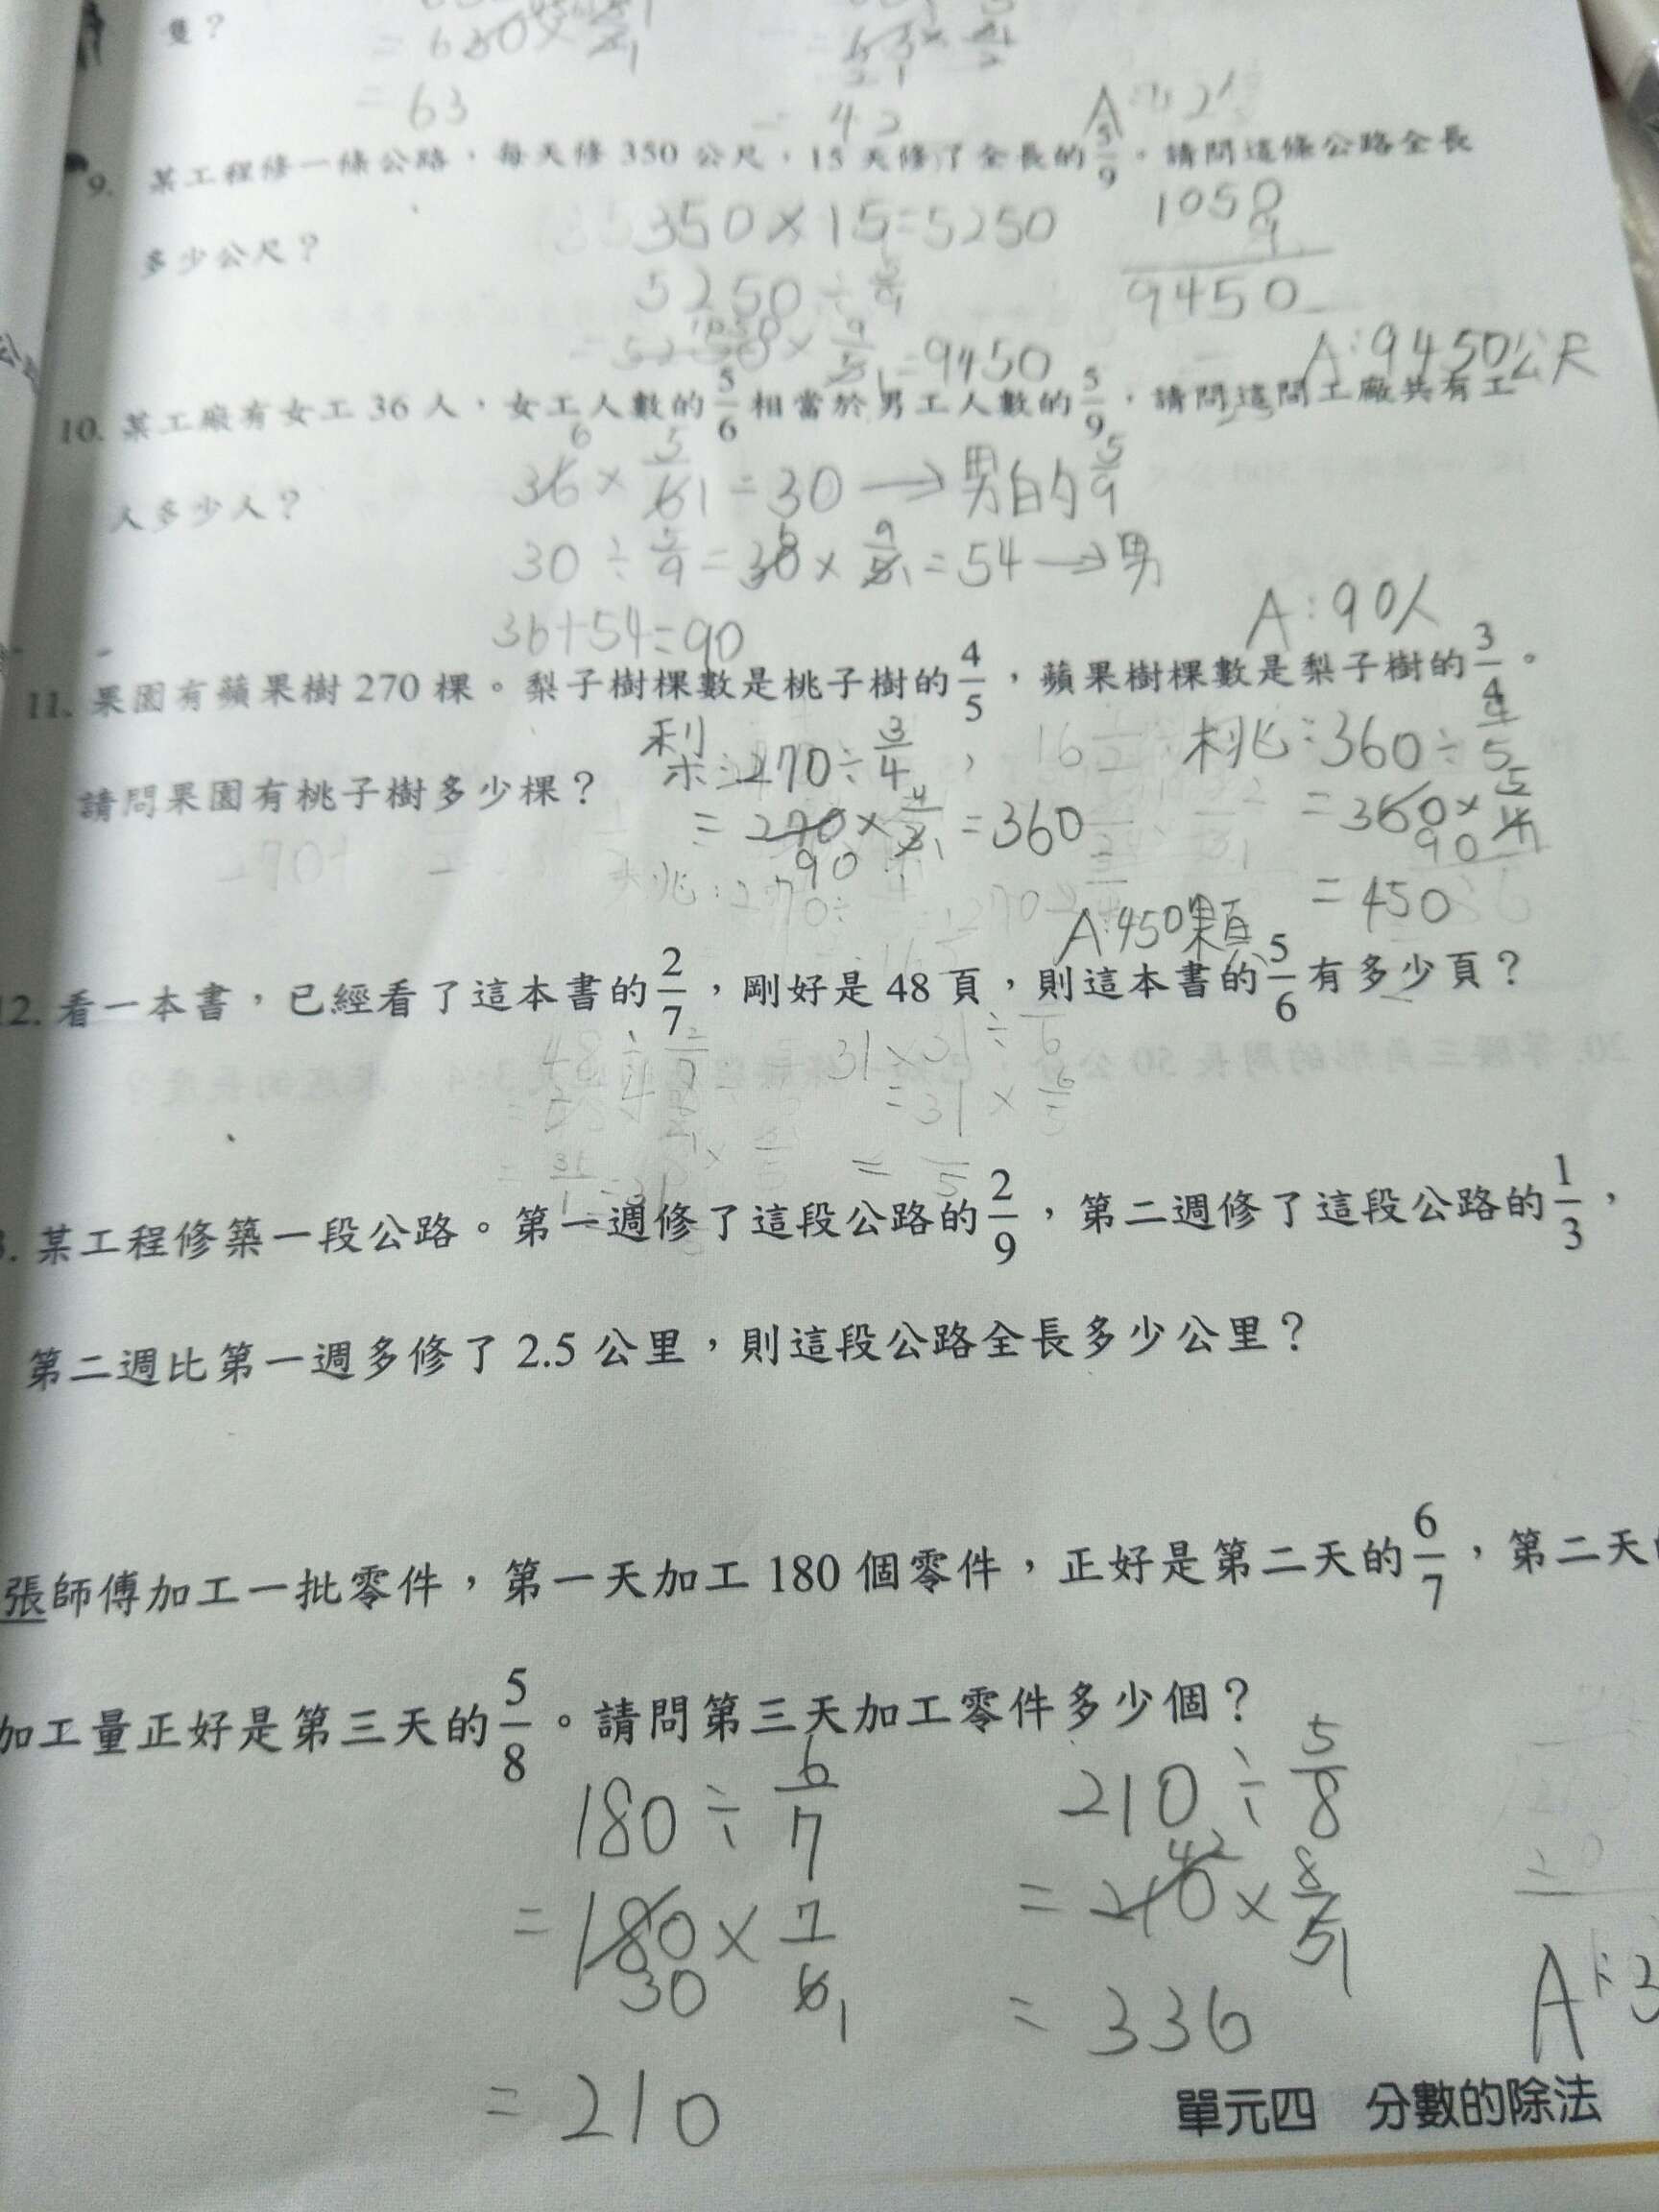 隻？
= 63
= 42
9. 某工程修一條公路，每天修 350 公尺，15 天修了全長的 5/9。請問這條公路全長
多少公尺？
350×15=5250
5250÷5/9
=5250×9/5=9450
1050
9
9450
A:9450公尺
10. 某工廠有女工 36 人，女工人數的 5/6 相當於男工人數的 5/9，請問這間工廠共有工
人多少人？
36×5/6=30→男的5/9
30÷5/9=30×9/5=54→男
36+54=90
A:90人
11. 果園有蘋果樹 270 棵。梨子樹棵數是桃子樹的 4/5，蘋果樹棵數是梨子樹的 3/4。
請問果園有桃子樹多少棵？
梨:270÷3/4
=270×4/3=360
90
桃:360÷4/5
=360×5/4
90
=450
A:450顆
12. 看一本書，已經看了這本書的 2/7，剛好是 48 頁，則這本書的 5/6 有多少頁？
. 某工程修築一段公路。第一週修了這段公路的 2/9，第二週修了這段公路的 1/3，
第二週比第一週多修了 2.5 公里，則這段公路全長多少公里？
張師傅加工一批零件，第一天加工 180 個零件，正好是第二天的 6/7，第二天
加工量正好是第三天的 5/8。請問第三天加工零件多少個？
180÷6/7
=180×7/6
30 1
=210
210÷5/8
42
=210×8/5
1
=336
A:3
單元四 分數的除法